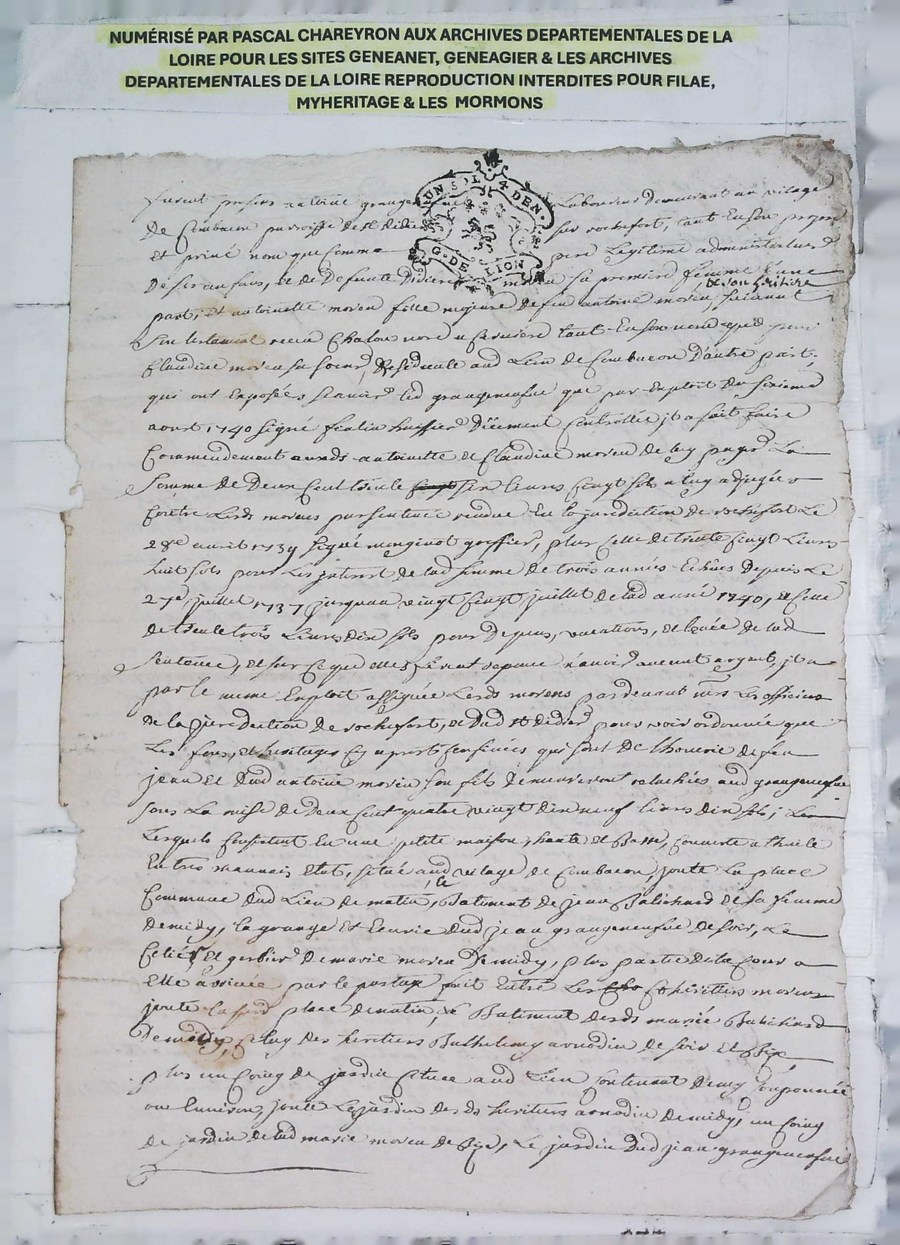 NUMÉRISÉ PAR PASCAL CHAREYRON AUX ARCHIVES DEPARTEMENTALES DE LA
LOIRE POUR LES SITES GENEANET, GENEAGIER & LES ARCHIVES
DEPARTEMENTALES DE LA LOIRE REPRODUCTION INTERDITES POUR FILAE,
MYHERITAGE & LES MORMONS
UN SOL 4 DEN.
G. DE LION
furent presens laboureur demeurant au vilage
de paroisse de st didier sur rochefort, tant en son propre
et privé nom que comme pere legitime administrateur
de ses enfans, et de defunte moren sa premiere femme d'une
de son heritiere
part, et antoinette moren fille majeure de feu antoine moren, suivant
son testament receu Chalon nore tant en son nom que
Claudine moren sa soeur, residente aud lieu de d'autre part,
qui ont exposées scavoir led grangeneufve que par exploit du sixieme
aout 1740 signé huissier duement controllée, il a fait faire
commendement auxds antoinette et Claudine moren de luy payer la
somme de deux cent trente six livres cinq sols a luy adjugée
contre lesds morens par sentence rendue en la juridiction de rochefort le
28e avril 1739 signé greffier, plus celle de trente cinq livres
huit sols pour les interest de lad somme de trois années echües depuis le
27e juillet 1737 jusquau vingt cinq juillet de lad année 1740, et celle
de trente trois livres dix sols pour depens, vacations, et levée de lad
sentence, et sur ce que elles firent reponce n'avoir aucunt argent, il a
par le meme exploit assignée lesds morens pardevant les officiers
de la juridiction de rochefort, et dud st didier pour voir ordonnée que
les fons, et heritages cy apres confinées qui sont de l'hoirie de feu
jean et dud antoine moren son fils demeureront relachées aud grangeneufve
sous la mise de deux cent quatre vingt dix neuf livres dix sols; les
lesquels consistent en une petite maison, haute et basse, couverte a thuile
en tres mauvais etat, situé aud vilage de joute la place
commune dud lieu de matin, le batiment de jean Balichard et sa femme
de midy, la grange et ecurie dud jean grangeneufve de soir, le
et gerbier de marie moren de midy, plus partie de la cour a
elle arrivée par le partage fait entre les coheritiers morens
joute la susd place de matin, le batiment desds mariés Balichard
de midy, celuy des heritiers Barthelemy arnodin de soir et bize
plus un coing de jardin situé aud lieu contenant demy couponnée
ou environ, joute le jardin desds heritiers arnodin de midy, un coing
de jardin de lad marie moren de bize, le jardin dud jean grangeneufve